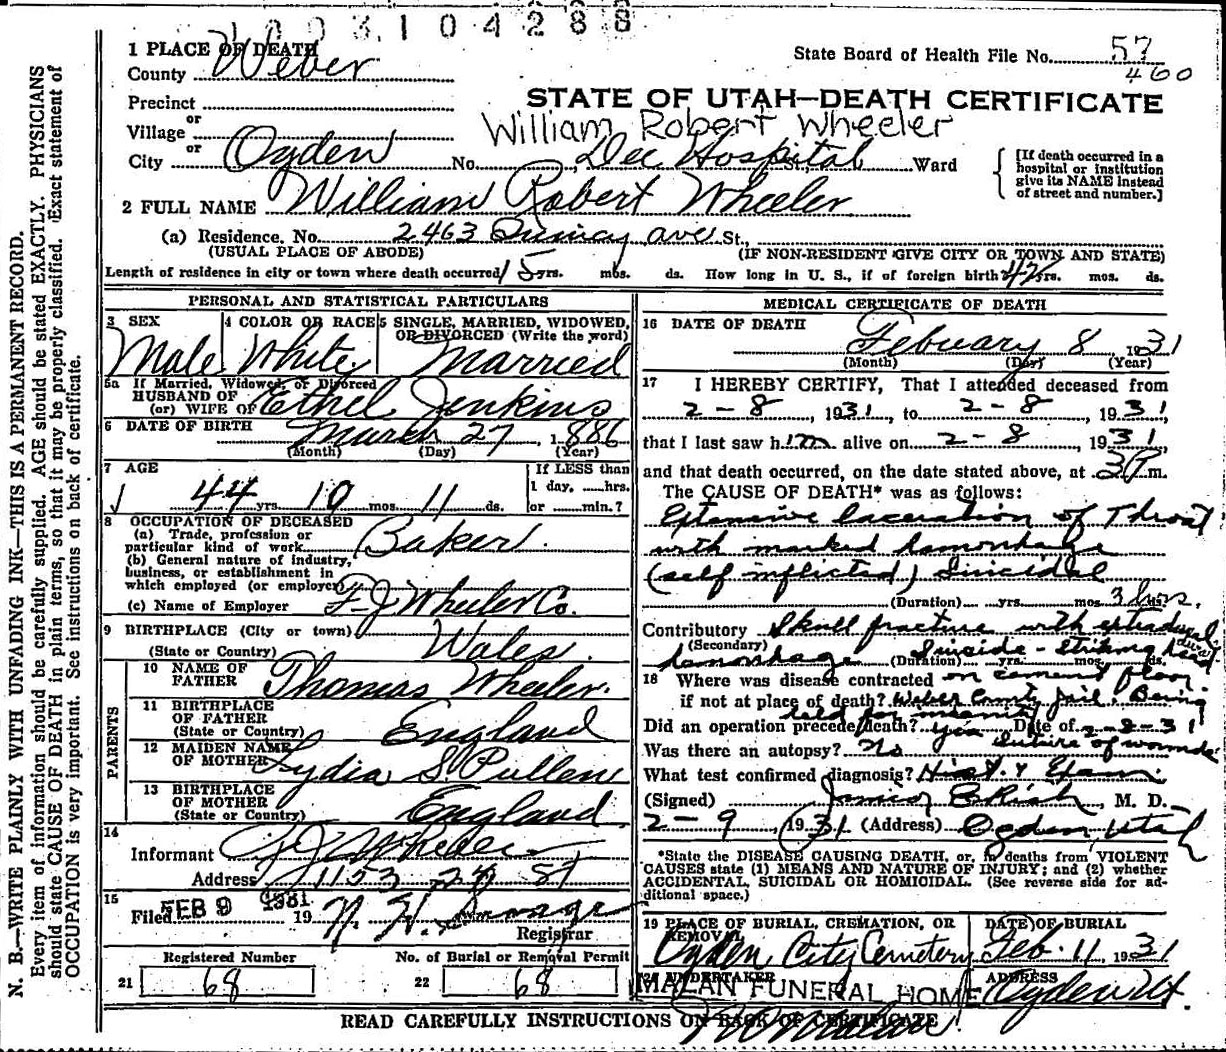 003104288
1 PLACE OF DEATH
County Weber
State Board of Health File No. 57
460
Precinct
or
Village
or
STATE OF UTAH—DEATH CERTIFICATE
William Robert Wheeler
City Ogden No. Dee Hospital St., Ward
[If death occurred in a
hospital or institution
give its NAME instead
of street and number.]
2 FULL NAME William Robert Wheeler
(a) Residence, No. 2463 Quincy ave St.,
(USUAL PLACE OF ABODE) (IF NON-RESIDENT GIVE CITY OR TOWN AND STATE)
Length of residence in city or town where death occurred 15 yrs. mos. ds. How long in U. S., if of foreign birth? 42 yrs. mos. ds.
PERSONAL AND STATISTICAL PARTICULARS
3 SEX
Male
4 COLOR OR RACE
White
5 SINGLE, MARRIED, WIDOWED,
OR DIVORCED (Write the word)
Married
5a If Married, Widowed, or Divorced
HUSBAND OF
(or) WIFE OF Ethel Jenkins
6 DATE OF BIRTH March 27, 1886
(Month) (Day) (Year)
7 AGE
44 yrs. 10 mos. 11 ds.
If LESS than
1 day, ......hrs.
or ......min.?
8 OCCUPATION OF DECEASED
(a) Trade, profession or
particular kind of work Baker
(b) General nature of industry,
business, or establishment in
which employed (or employer)
(c) Name of Employer F. J. Wheeler Co.
9 BIRTHPLACE (City or town)
(State or Country) Wales
PARENTS
10 NAME OF
FATHER Thomas Wheeler.
11 BIRTHPLACE
OF FATHER
(State or Country) England
12 MAIDEN NAME
OF MOTHER Lydia S. Pullen
13 BIRTHPLACE
OF MOTHER
(State or Country) England
14
Informant F J Wheeler
Address 1153 27 St
15
Filed FEB 9 1931 19 N. H. Savage
Registrar
Registered Number
21 68
No. of Burial or Removal Permit
22 68
MEDICAL CERTIFICATE OF DEATH
16 DATE OF DEATH
Febuary 8 1931
(Month) (Day) (Year)
17 I HEREBY CERTIFY, That I attended deceased from
2-8, 1931, to 2-8, 1931
that I last saw him alive on 2-8, 1931,
and that death occurred, on the date stated above, at 3 P m.
The CAUSE OF DEATH* was as follows:
Extensive laceration of Throat
with marked hamorrhage
(self inflicted) Suicidal
(Duration) yrs. mos. 3 hrs.
Contributory Skull fracture with extradural
(Secondary)
hamorrhage (Duration) yrs. mos. ds.
Suicide - Striking head
18 Where was disease contracted on cement floor
if not at place of death? Weber County Jail. Being
held for insanity
Did an operation precede death? yes Date of 2-8-31
Suture of wounds
Was there an autopsy? No
What test confirmed diagnosis? Hist. & Exam.
(Signed) Junior E Rich, M. D.
2-9 1931 (Address) Ogden Utah
*State the DISEASE CAUSING DEATH, or, in deaths from VIOLENT
CAUSES state (1) MEANS AND NATURE OF INJURY; and (2) whether
ACCIDENTAL, SUICIDAL OR HOMICIDAL. (See reverse side for ad-
ditional space.)
19 PLACE OF BURIAL, CREMATION, OR
REMOVAL
Ogden City Cemetery
DATE OF BURIAL
Feb. 11, 1931
20 UNDERTAKER
MALAN FUNERAL HOME
ADDRESS
Ogden Ut.
READ CAREFULLY INSTRUCTIONS ON BACK OF CERTIFICATE
N. B.—WRITE PLAINLY WITH UNFADING INK—THIS IS A PERMANENT RECORD.
Every item of information should be carefully supplied. AGE should be stated EXACTLY. PHYSICIANS
should state CAUSE OF DEATH in plain terms, so that it may be properly classified. (Exact statement of
OCCUPATION is very important. See instructions on back of certificate.